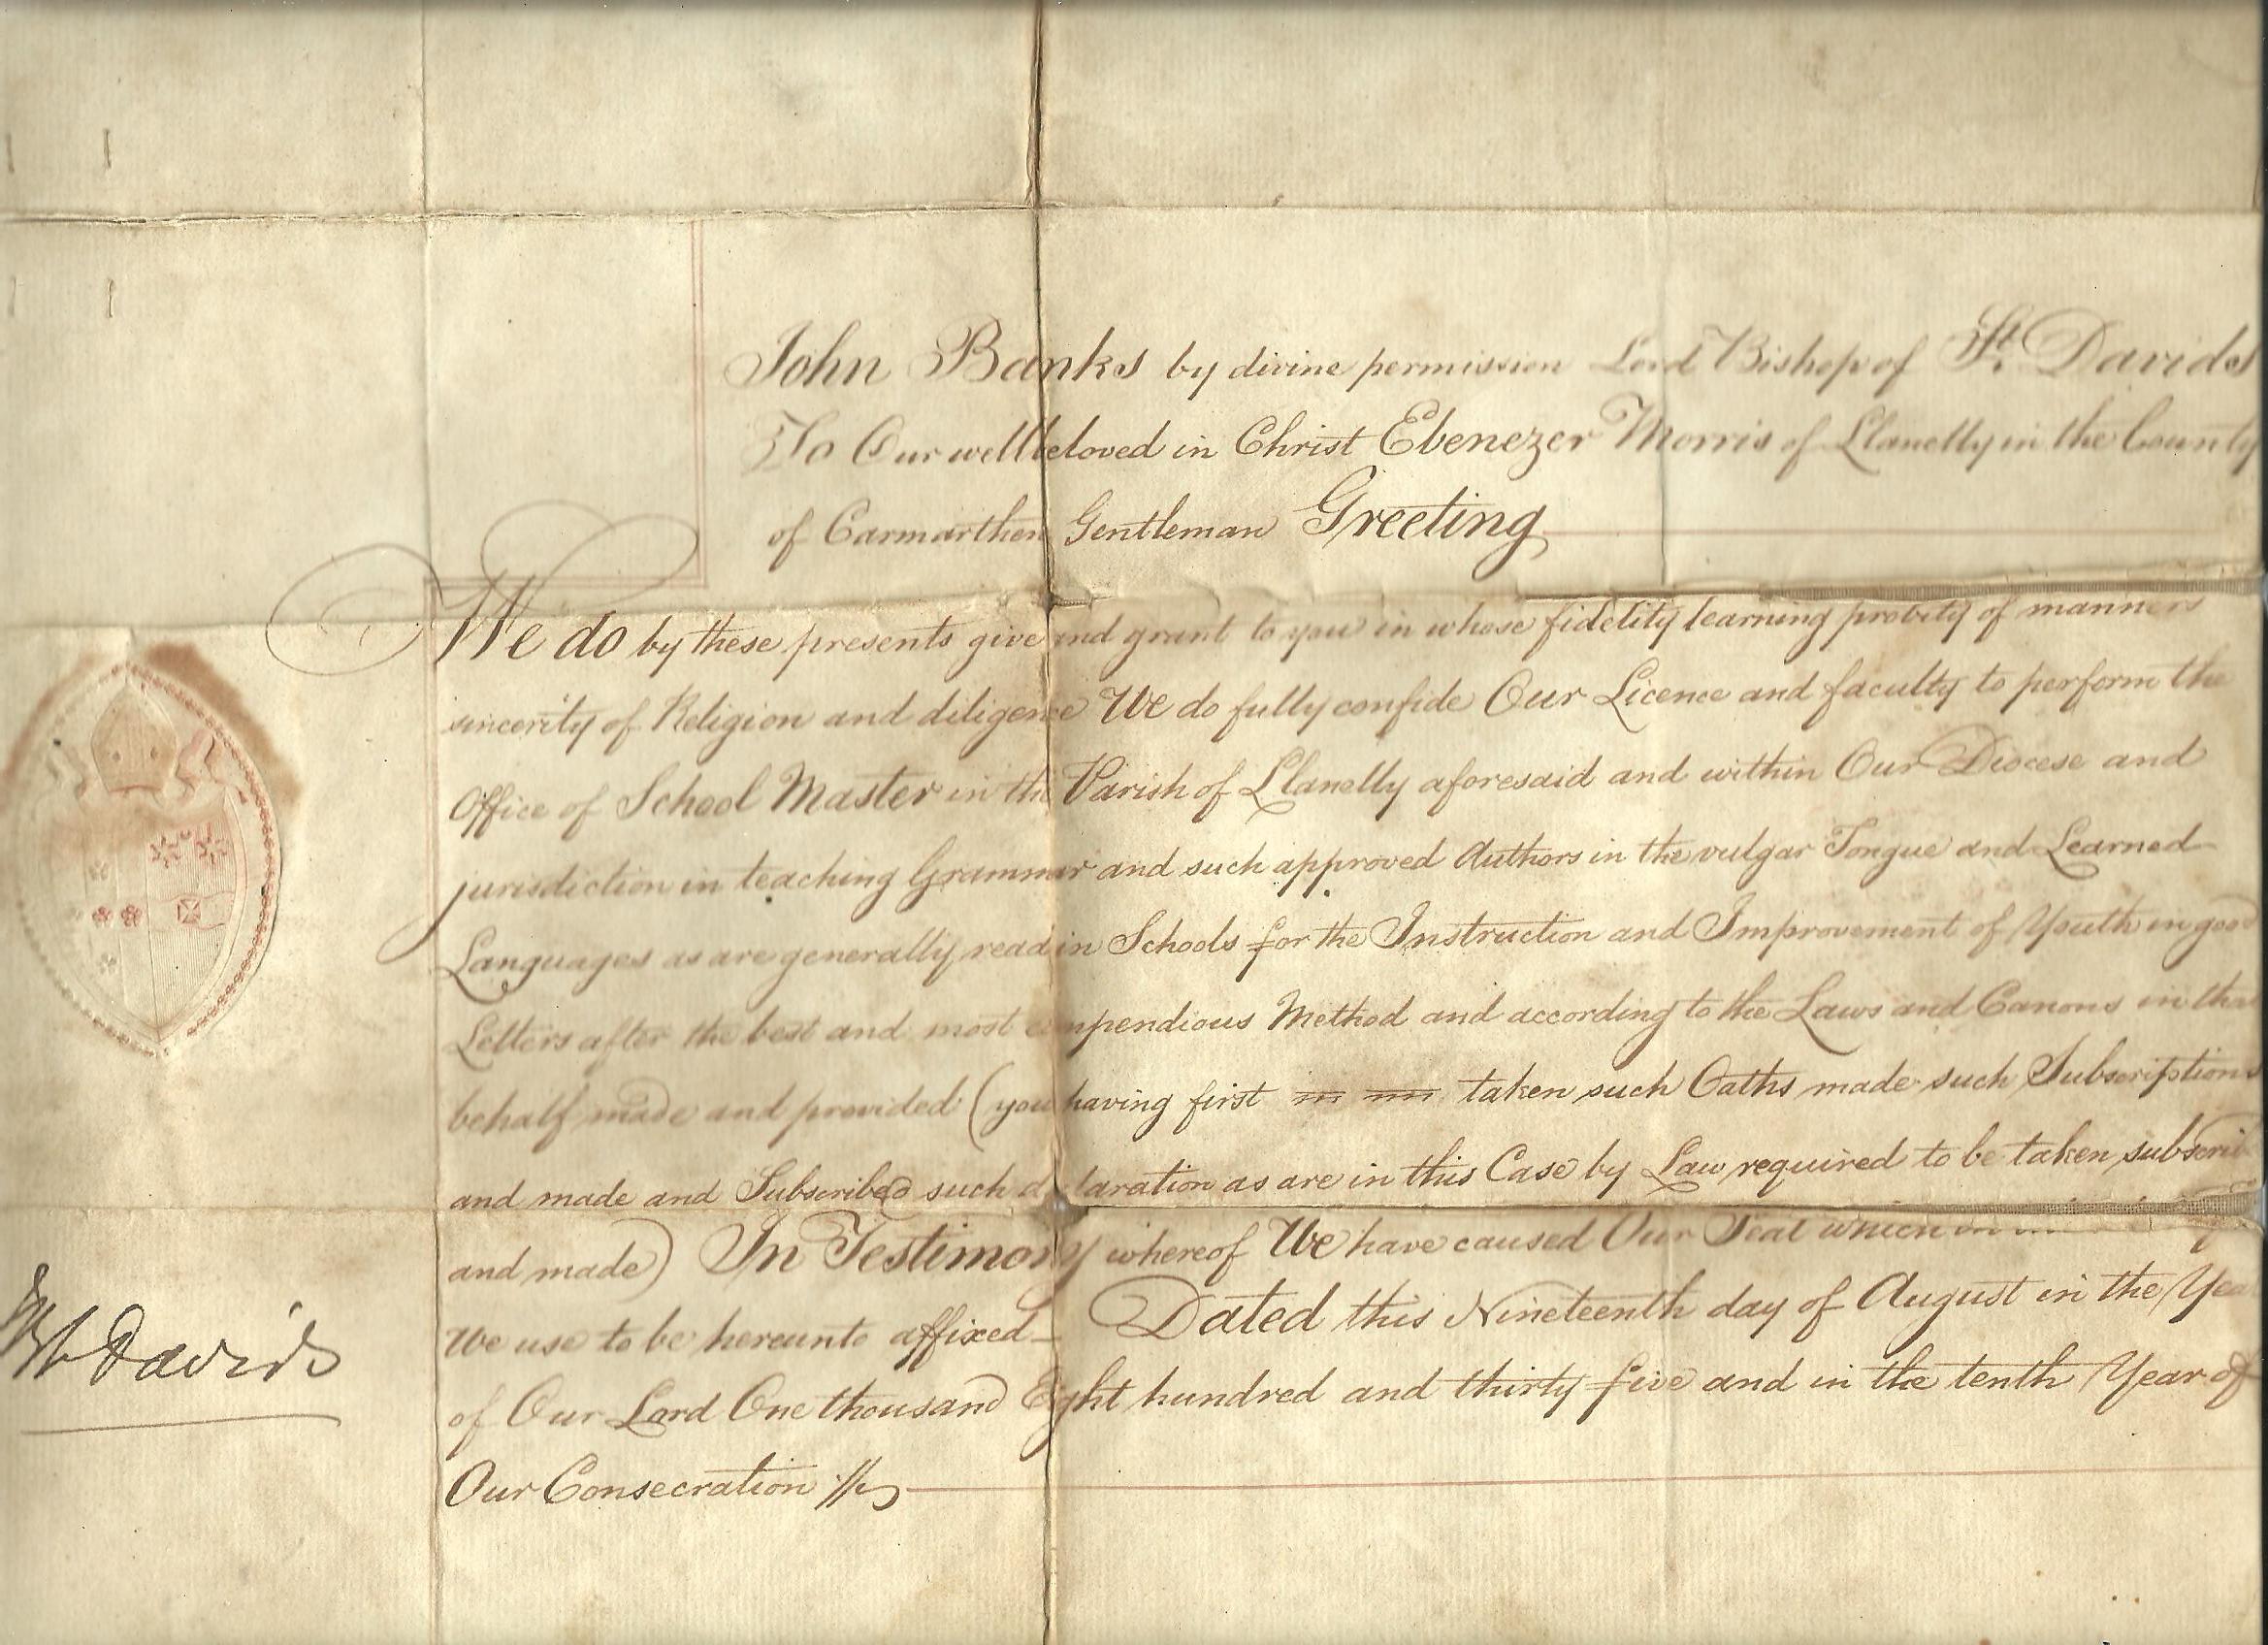 John Banks by divine permission Lord Bishop of St. Davids
To Our wellbeloved in Christ Ebenezer Morris of Llanelly in the County
of Carmarthen Gentleman Greeting
We do by these presents give and grant to you in whose fidelity learning probity of manners
sincerity of Religion and diligence We do fully confide Our Licence and faculty to perform the
Office of School Master in the Parish of Llanelly aforesaid and within Our Diocese and
jurisdiction in teaching Grammar and such approved Authors in the vulgar Tongue and Learned
Languages as are generally read in Schools for the Instruction and Improvement of Youth in good
Letters after the best and most compendious Method and according to the Laws and Canons in that
behalf made and provided (you having first taken such Oaths made such Subscriptions
and made and Subscribed such declaration as are in this Case by Law required to be taken subscribed
and made) In Testimony whereof We have caused Our Seal which in
We use to be hereunto affixed Dated this Nineteenth day of August in the Year
of Our Lord One thousand Eight hundred and thirty five and in the tenth Year of
Our Consecration
St Davids